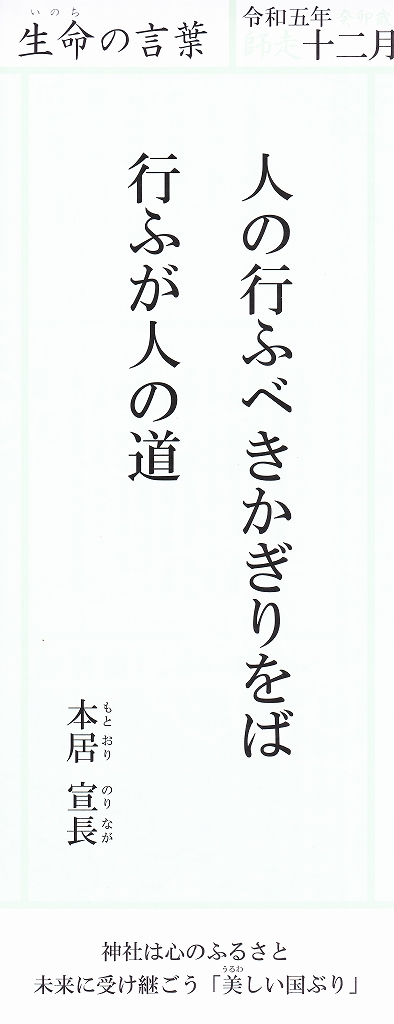 生命の言葉
いのち
令和五年
十二月
師走
人の行ふべきかぎりをば
行ふが人の道
本居 宣長
もと おり のり なが
神社は心のふるさと
未来に受け継ごう「美しい国ぶり」
うるわ